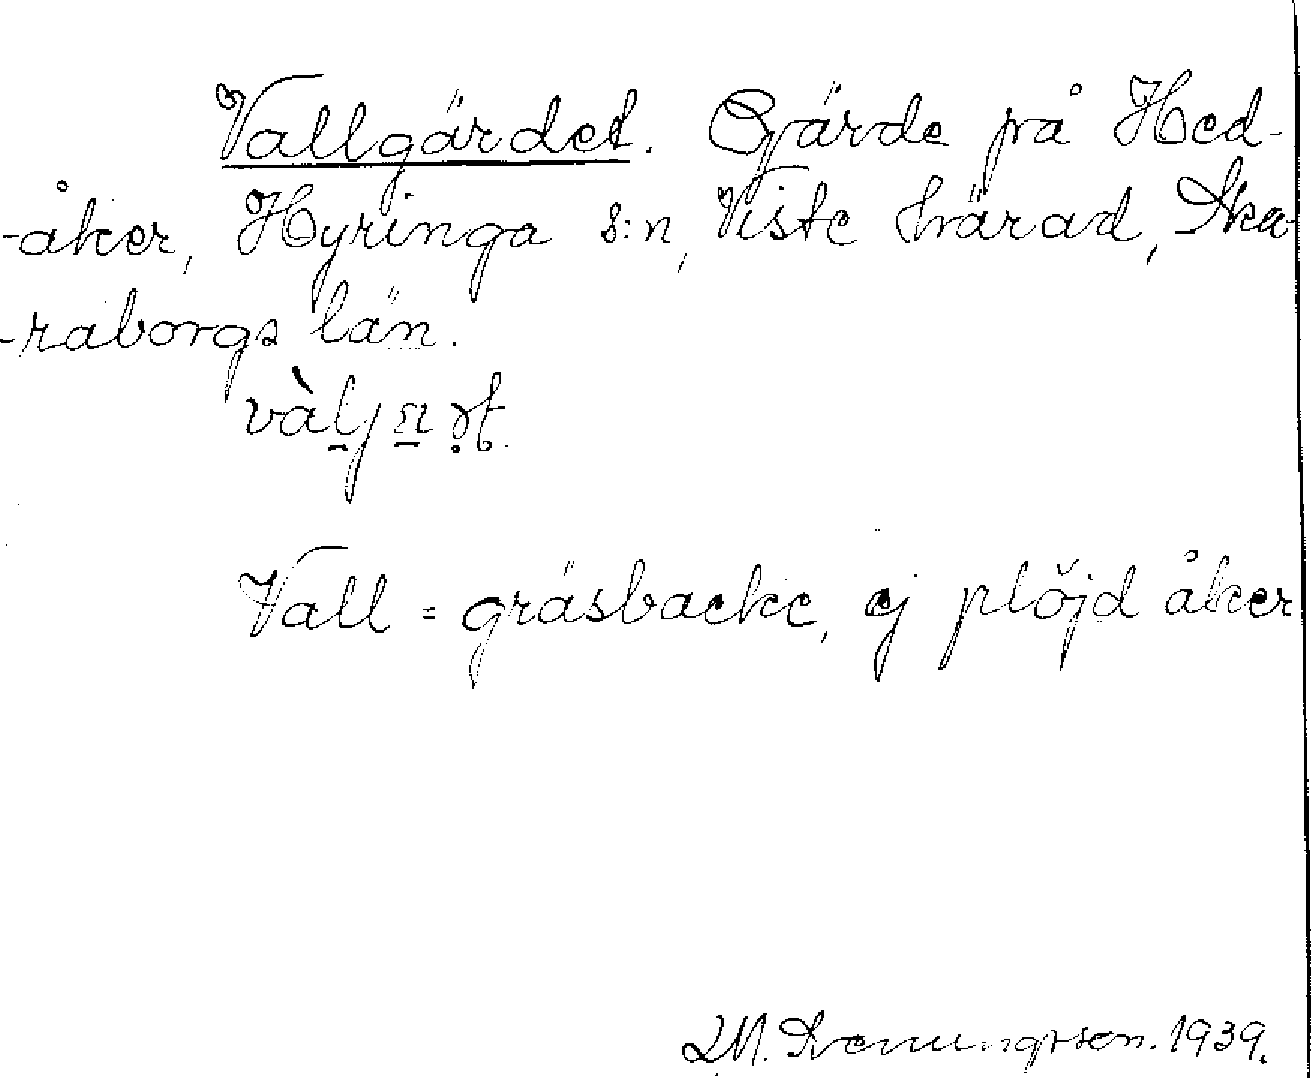 Vallgärdet. Gärde på Hed-
-åker, Hyringa s:n, Viste härad, Ska-
-raborgs län.
Vall = gräsbacke, ej plöjd åker.
M. Svenungsson. 1939.